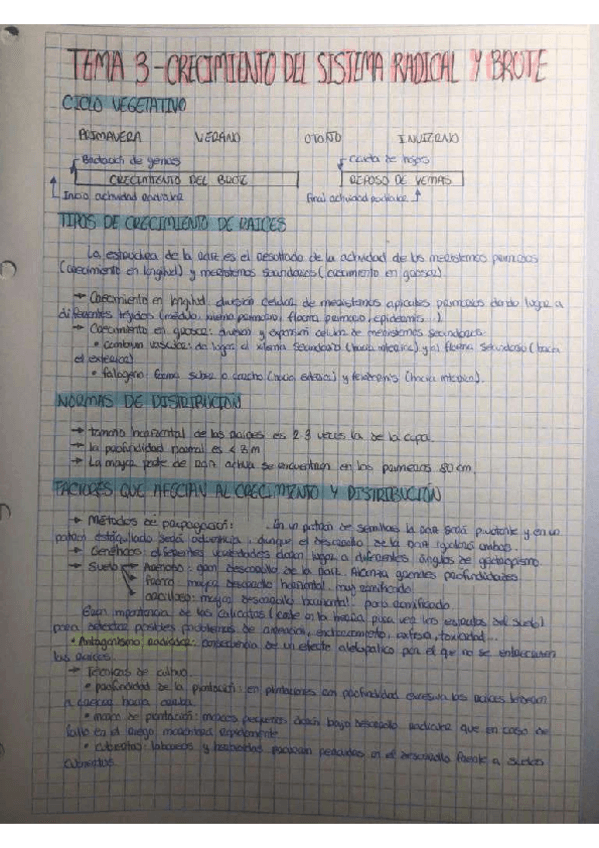 TEMA 3 - CRECIMIENTO DEL SISTEMA RADICAL Y BROTE
CICLO VEGETATIVO
PRIMAVERA VERANO OTOÑO INVIERNO
Brotación de yemas Caída de hojas
CRECIMIENTO DEL BROTE REPOSO DE YEMAS
Inicio actividad radicular Final actividad radicular
TIPOS DE CRECIMIENTO DE RAICES
La estructura de la raíz es el resultado de la actividad de los meristemos primarios
(crecimiento en longitud) y meristemos secundarios (crecimiento en grosor).
→ Crecimiento en longitud: división celular de meristemos apicales primarios dando lugar a
diferentes tejidos (médula, xilema primario, floema primario, epidermis...)
→ Crecimiento en grosor: división y expansión celular de meristemos secundarios:
• cambium vascular: da lugar al xilema secundario (hacia interior) y al floema secundario (hacia
el exterior)
• felógeno: forma súber o corcho (hacia exterior) y felodermis (hacia interior).
NORMAS DE DISTRIBUCIÓN
→ tamaño horizontal de las raíces es 2-3 veces la de la copa.
→ la profundidad normal es < 2m
→ La mayor parte de raíz activa se encuentran en los primeros 80 cm.
FACTORES QUE AFECTAN AL CRECIMIENTO Y DISTRIBUCIÓN
→ Métodos de propagación: En un patrón de semillas la raíz será pivotante y en un
patrón estaquillado será adventicia, aunque el desarrollo de la raíz igualará ambas.
→ Genéticos: diferentes variedades darán lugar a diferentes ángulos de geotropismo.
→ Suelo → Arenoso: gran desarrollo de la raíz. Alcanza grandes profundidades
franco: mayor desarrollo horizontal. muy ramificado.
arcilloso: mayor desarrollo horizontal. poco ramificado.
Gran importancia de las calicatas (corte en la tierra para ver los estratos del suelo)
para detectar posibles problemas de animación, encharcamiento, asfixia, toxicidad...
• Antagonismo radicular: consecuencia de un efecto alelopático por el que no se entrecruzan
las raíces.
→ Técnicas de cultivo.
• profundidad de la plantación: en plantaciones con profundidad excesiva las raíces tenderán
a crecer hacia arriba.
• marco de plantación: marcos pequeños darán bajo desarrollo radicular que en caso de
fallo en el riego mostrará rápidamente.
• cubiertas: laboreos y herbicidas provocan en el desarrollo frente a suelos
cubiertos.